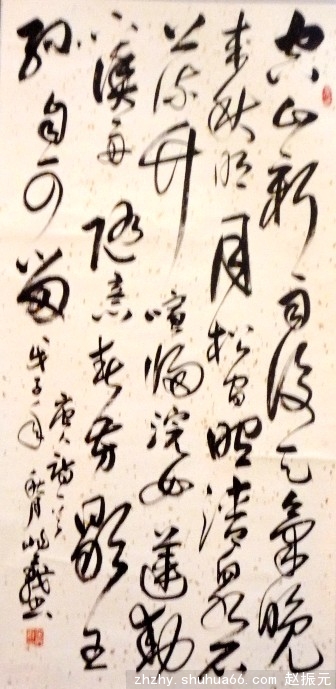 空山新雨後天氣晚
来秋明月松间照清泉石
上流竹喧归浣女莲动
下渔舟随意春芳歇王
孙自可留
唐人诗一首
戊子年
zhzhy.shuhua66.com 赵振元